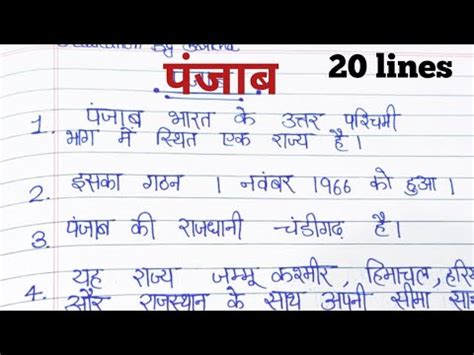 पंजाब
20 lines
1. पंजाब भारत के उत्तर पश्चिमी
भाग में स्थित एक राज्य है।
2. इसका गठन 1 नवंबर 1966 को हुआ।
3. पंजाब की राजधानी चंडीगढ़ है।
4. यह राज्य जम्मू कश्मीर, हिमाचल,
और राजस्थान के साथ अपनी सीमा